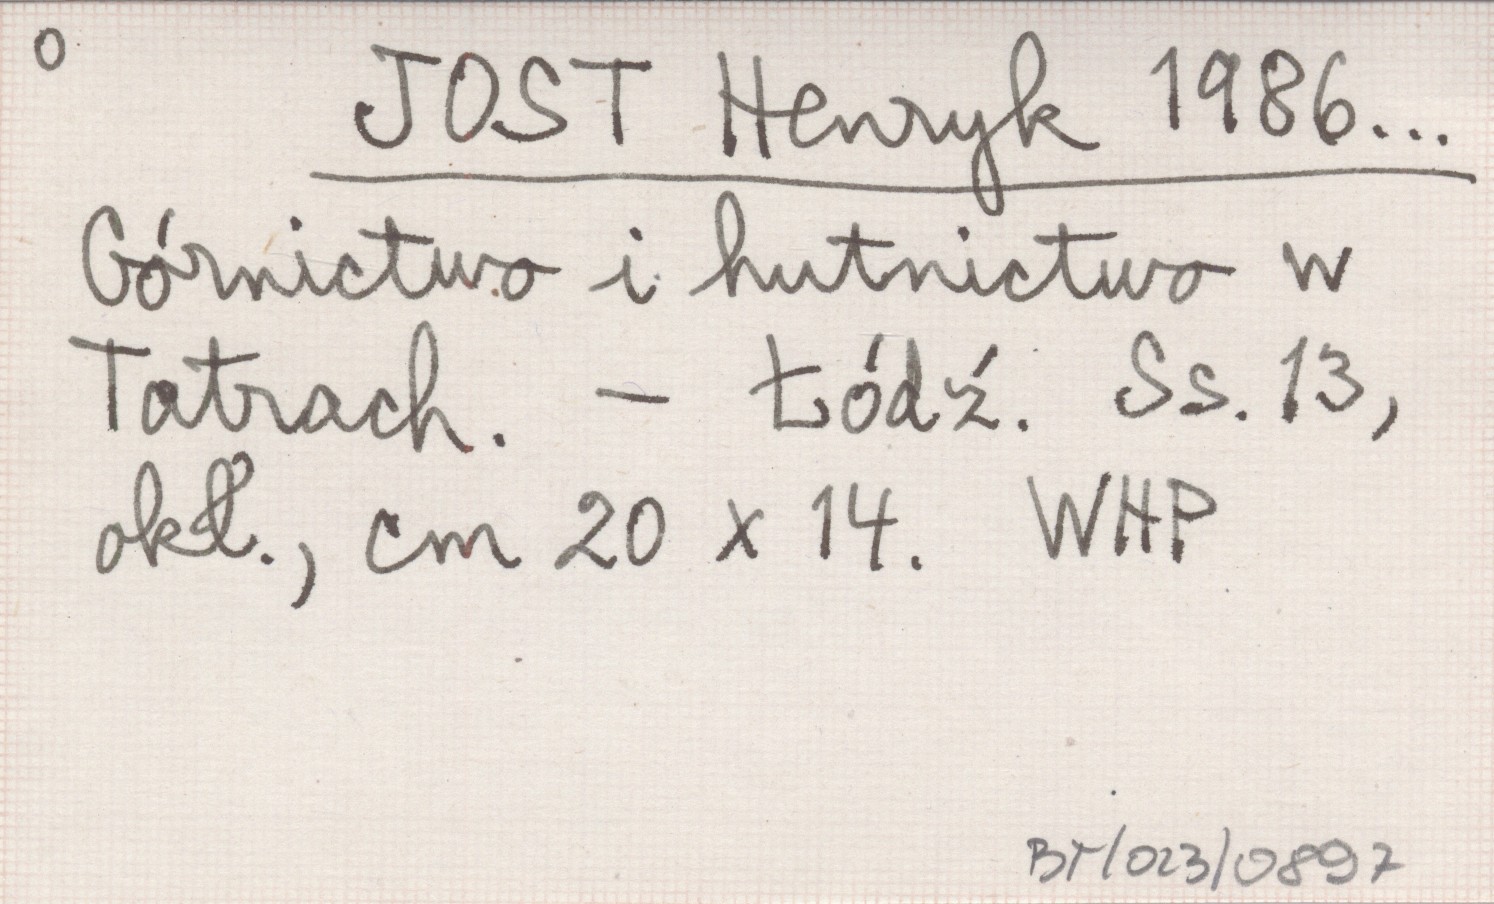 o
JOST Henryk 1986...
Górnictwo i hutnictwo w
Tatrach. – Łódź. Ss. 13,
okł., cm 20 x 14. WHP
BT/023/0897